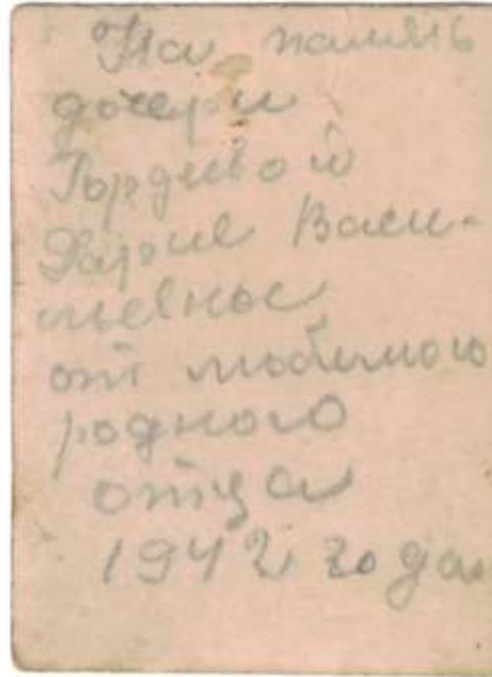 На память
дочери
Гордиевой
Дарие Васи-
льевной
от любимого
родного
отца
1942 года